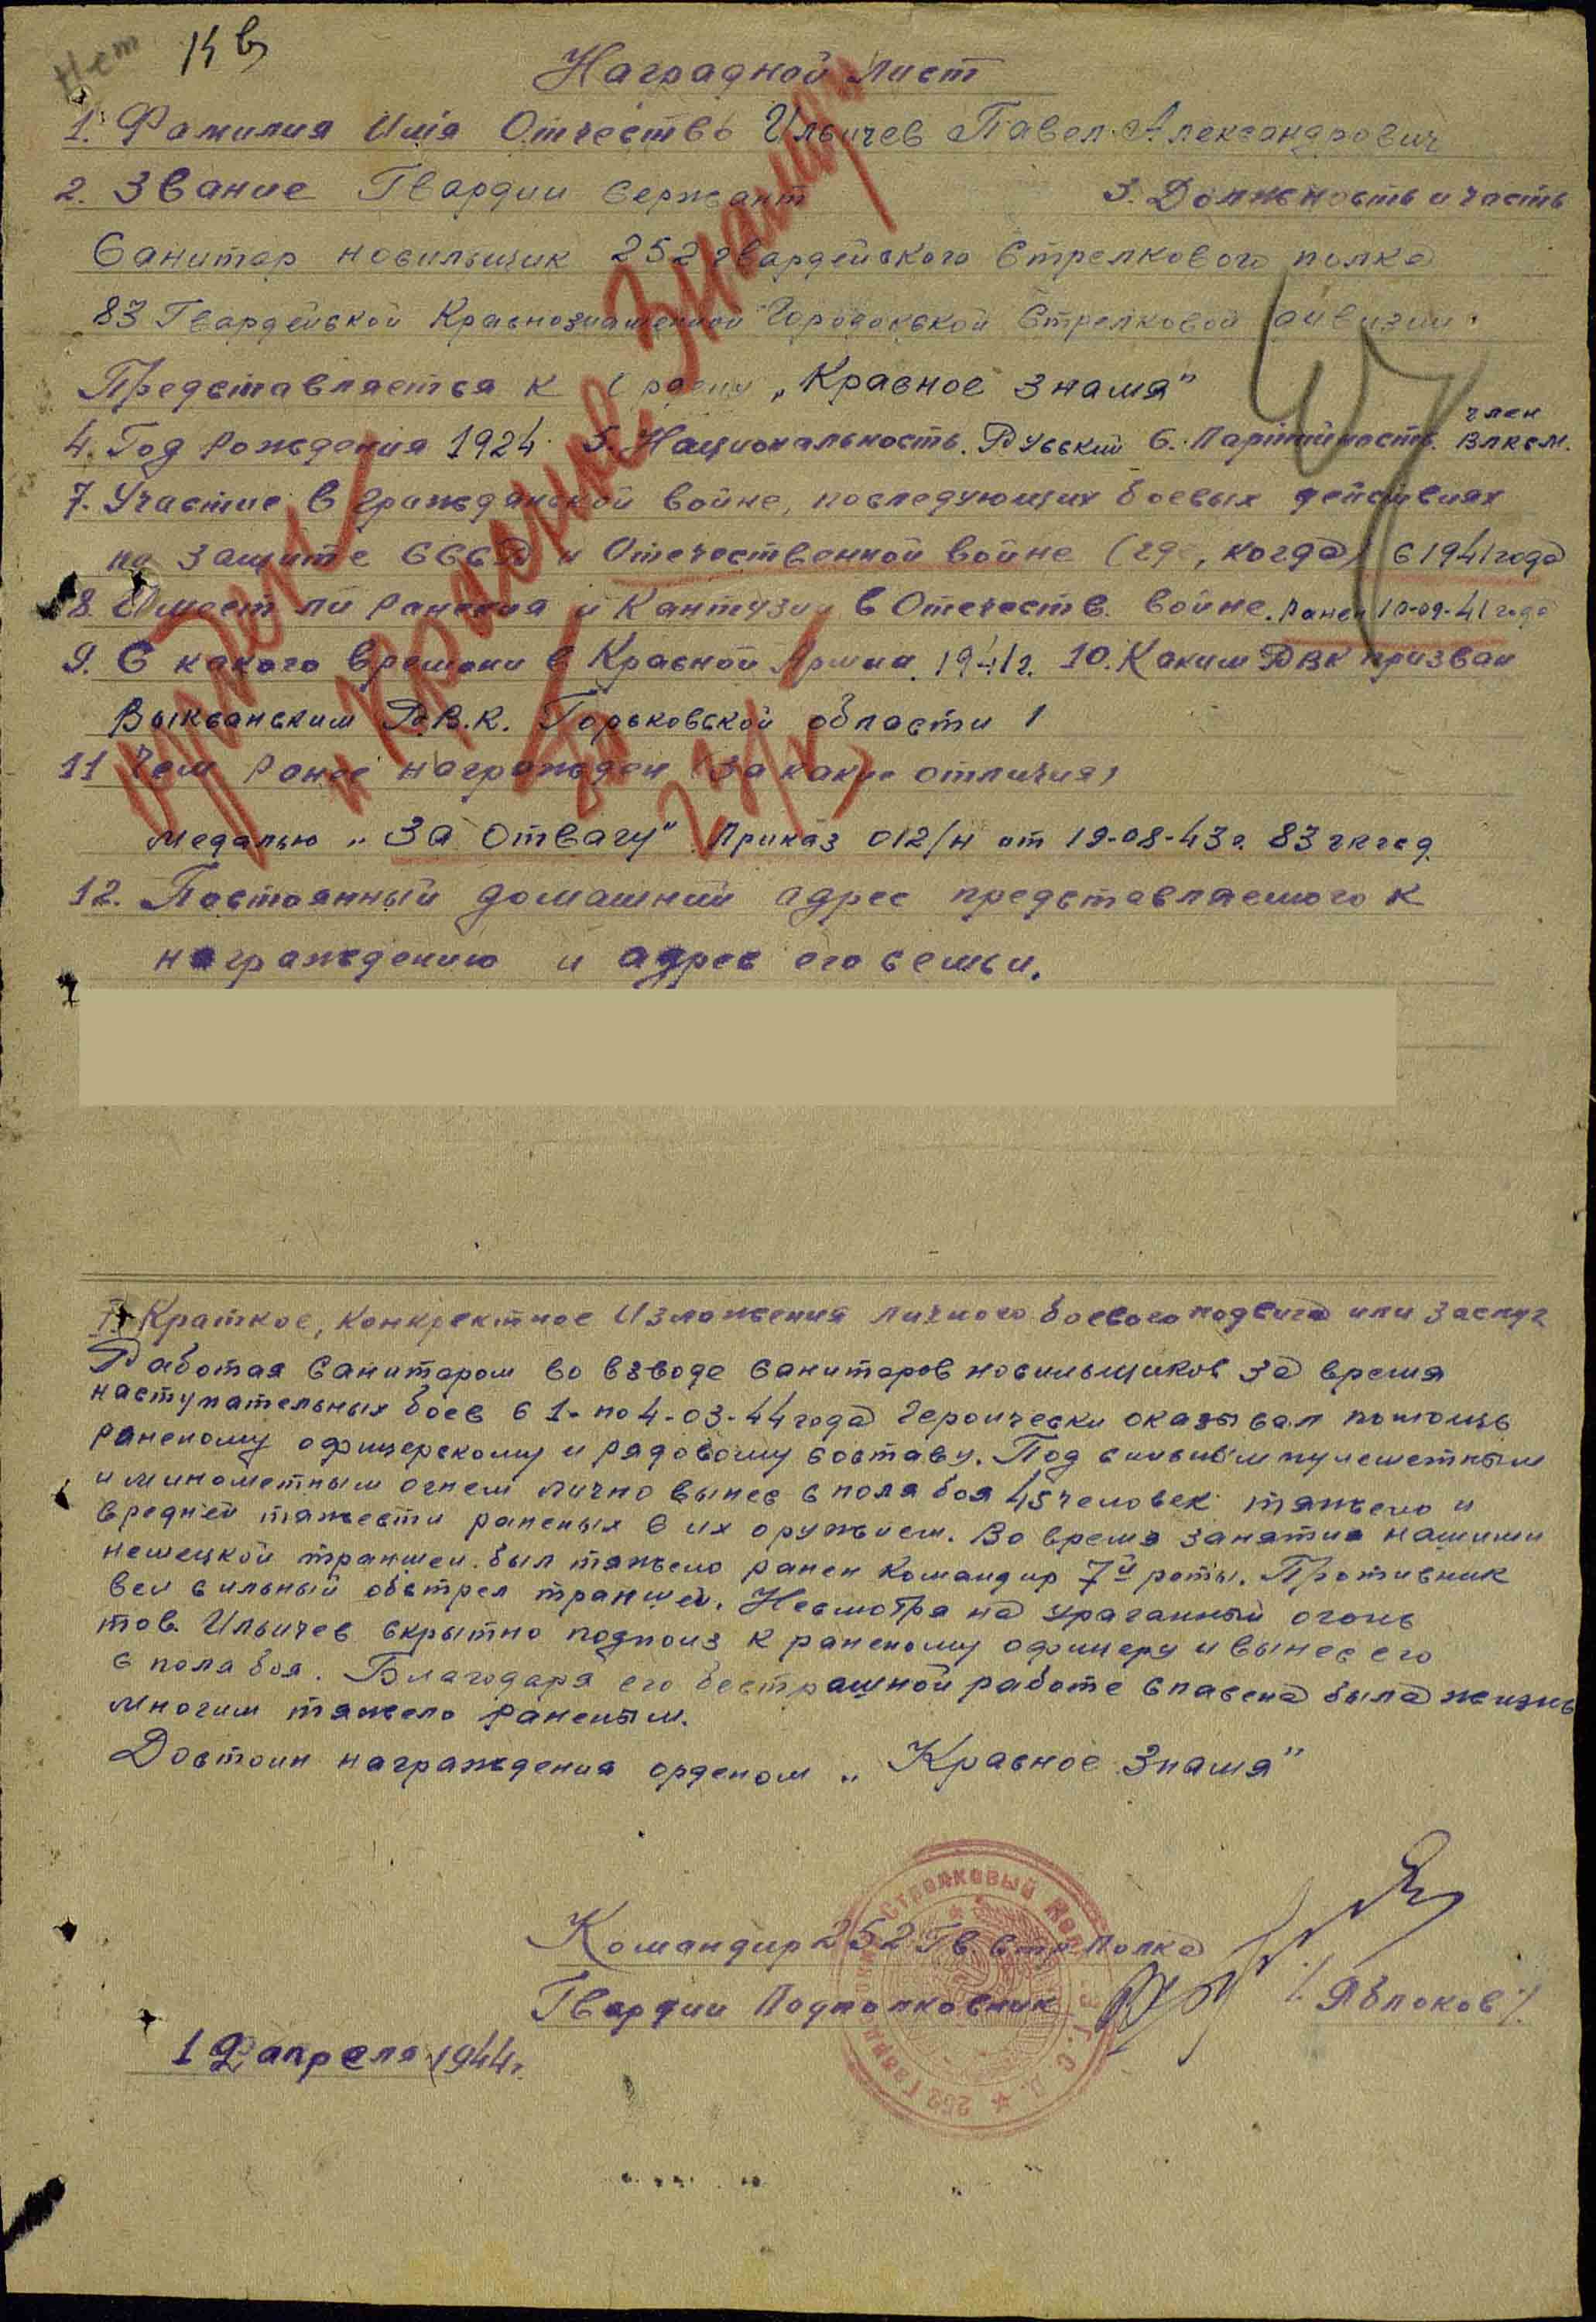 Нет Кв
Наградной лист
1. Фамилия Имя Отчество Ильичев Павел Александрович
2. Звание Гвардии сержант 3. Должность и часть
Санитар носильщик 252 гвардейского Стрелкового полка
83 Гвардейской Краснознаменной Городокской Стрелковой дивизии.
Представляется к Ордену „Красное Знамя"
4. Год рождения 1924. 5. Национальность. Русский 6. Партийность. член ВЛКСМ.
7. Участие в гражданской войне, последующих боевых действиях
по защите СССР и Отечественной войне (где, когда) с 1941 года
8. Имеет ли ранения и Кантузии в Отечеств. войне. ранен 10-09-41 года
9. С какого времени в Красной Армии. 1941 г. 10. Каким РВК призван
Выксанским Р.В.К. Горьковской области
11 Чем ранее награжден (за какие отличия)
медалью „За Отвагу" Приказ 012/н от 19-08-43 г. 83 гкгсд.
12. Постоянный домашний адрес представляемого к
награждению и адрес его семьи.
Краткое, конкректное Изложения личного боевого подвига или заслуг
Работая санитаром во взводе санитаров носильщиков за время
наступательных боев с 1-по 4-03-44 года героически оказывал помощь
раненому офицерскому и рядовому составу. Под сильным пулеметным
и минометным огнем лично вынес с поля боя 45 человек тяжело и
средней тяжести раненых с их оружием. Во время занятия нашими
немецкой траншеи был тяжело ранен командир 7й роты. Противник
вел сильный обстрел траншеи. Несмотря на ураганный огонь
тов. Ильичев скрытно подполз к раненому офицеру и вынес его
с поля боя. Благодаря его бестрашной работе спасена была жизнь
многим тяжело раненым.
Достоин награждения орденом „Красное Знамя"
Командир 252 Гв Стр Полка
Гвардии Подполковник /Яблоков/.
12 апреля 1944 г.
орден
Красное Знамя
Стрелковый Полк
252 Гвард